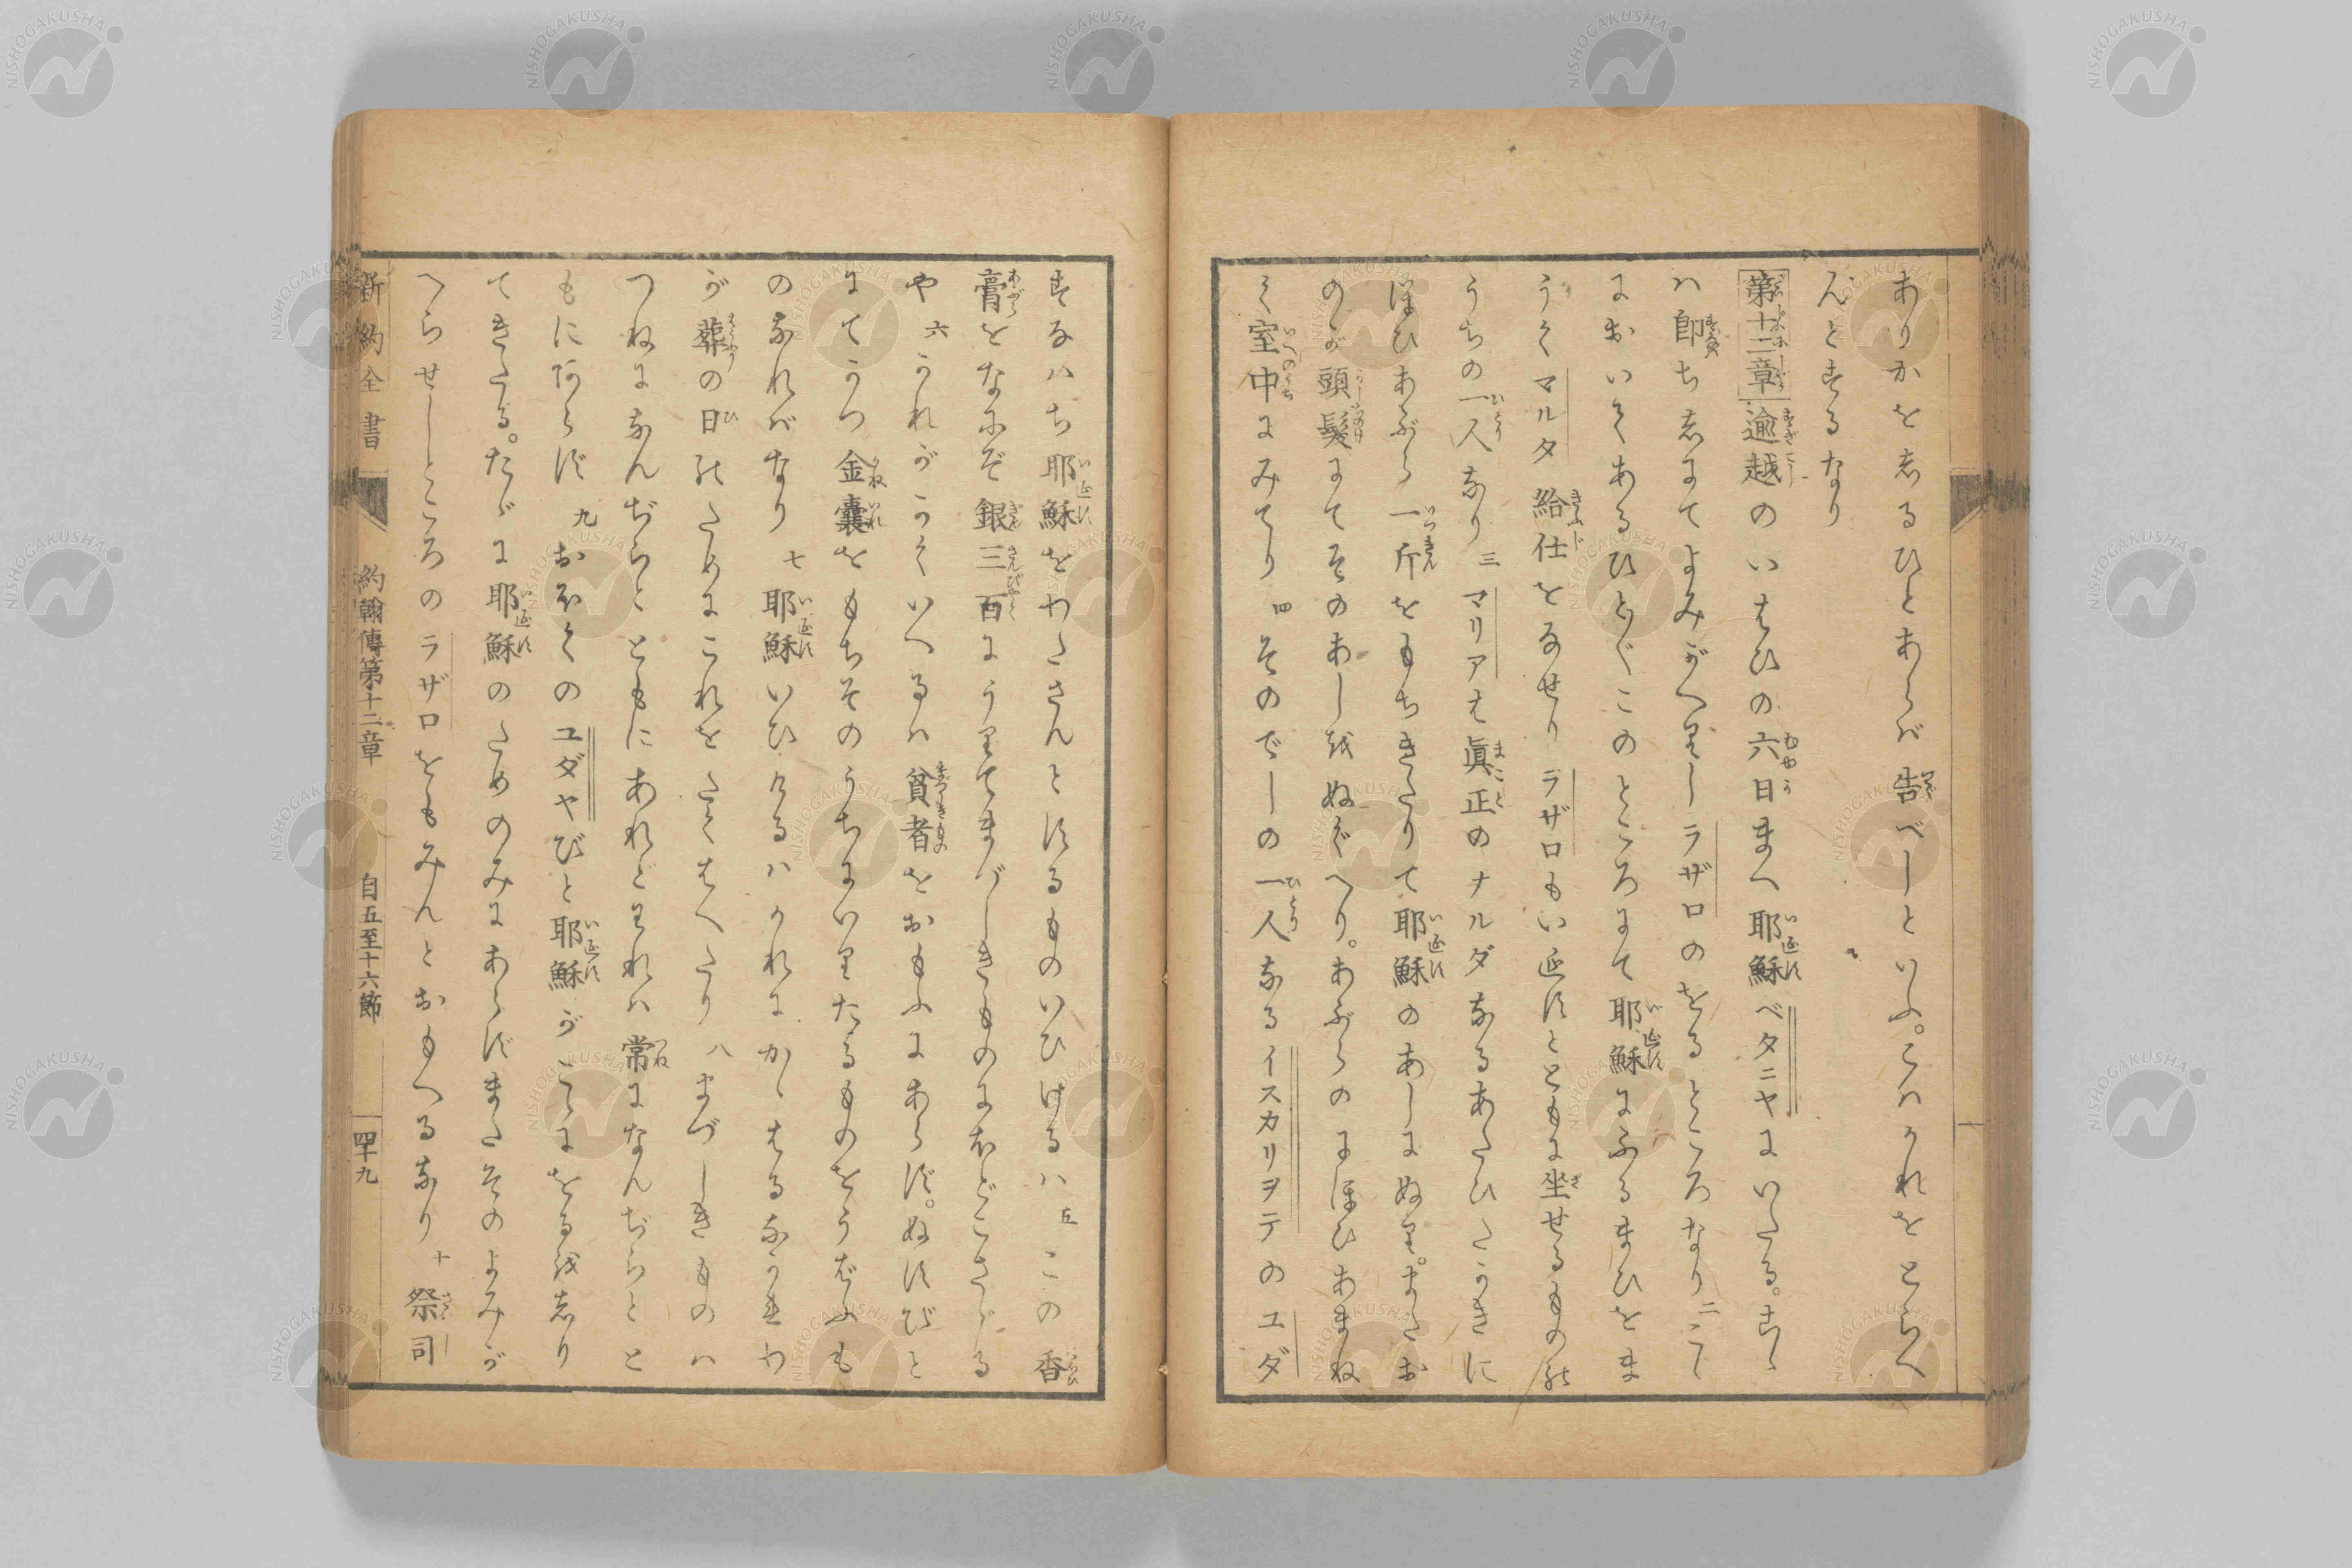 ありかを志るひとあらバ告べしといふ。こハかれをとらへ
んとするなり
第十二章 逾越のいはひの六日まへ耶穌ベタニヤにいたる。こゝ
ハ卽ち志にてよみがへりしラザロのをるところなり 二 こゝ
においてあるひと〴〵このところにて耶穌にふるまひをま
うくマルタ給仕をなせりラザロもい𛀁すとともに坐せるものゝ
うちの一人なり 三 マリアは眞正のナルダなるあたひたかきに
ほひあぶら一斤をもちきたりて耶穌のあしにぬり。またお
のが頭髮にてそのあしをぬぐへり。あぶらのにほひあまね
く室中にみてり 四 そのでしの一人なるイスカリヲテのユダ
すなハち耶穌をわたさんとするものいひけるハ 五 この香
膏をなにぞ銀三百にうりてまづしきものにほどこさゞる
や 六 かれがかくいへるハ貧者をおもふにあらず。ぬすびと
にてかつ金囊をもちそのうちにいりたるものをうばふも
のなれバなり 七 耶穌いひけるハかれにかゝはるなかれわ
が葬の日のためにこれをたくはへたり 八 まづしきものハ
つねになんぢらとともにあれどわれハ常になんぢらとと
もにあらず 九 おほくのユダヤびと耶穌がこゝにをるを志り
てきたる。たゞに耶穌のためのみにあらずまたそのよみが
へらせしところのラザロをもみんとおもへるなり 十 祭司
新約全書 約翰傳第十二章 自五至十六節 四十九
NISHOGAKUSHA